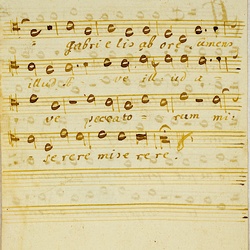 gabrielis ab ore, sumens
illud a ve illud a
ve peccato rum mi
serere miserere.